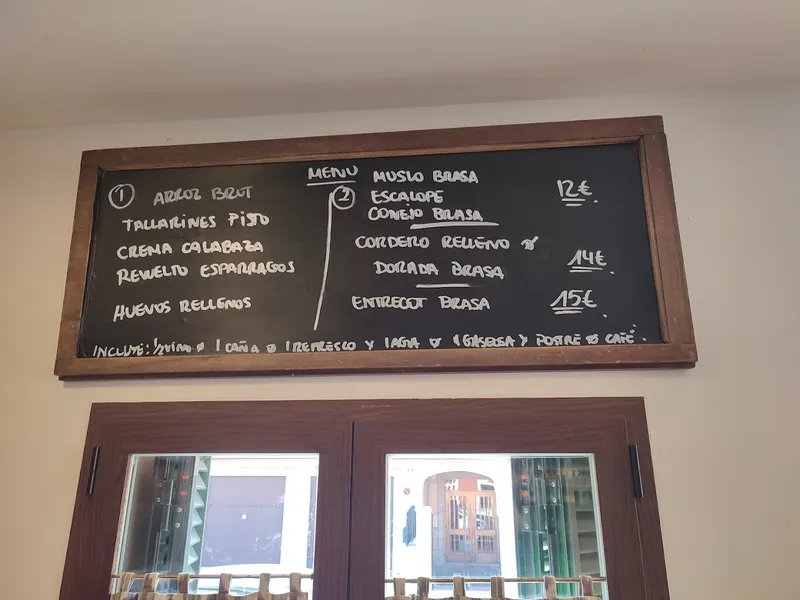 MENU
① ARROZ BRUT
TALLARINES PISTO
CREMA CALABAZA
REVUELTO ESPARRAGOS
HUEVOS RELLENOS
② MUSLO BRASA
ESCALOPE
CONEJO BRASA 12€
CORDERO RELLENO
DORADA BRASA 14€
ENTRECOT BRASA 15€
INCLUYE: 1/2 VINO o 1 CAÑA o 1 REFRESCO Y 1 AGUA o 1 GASEOSA Y POSTRE o CAFÉ.